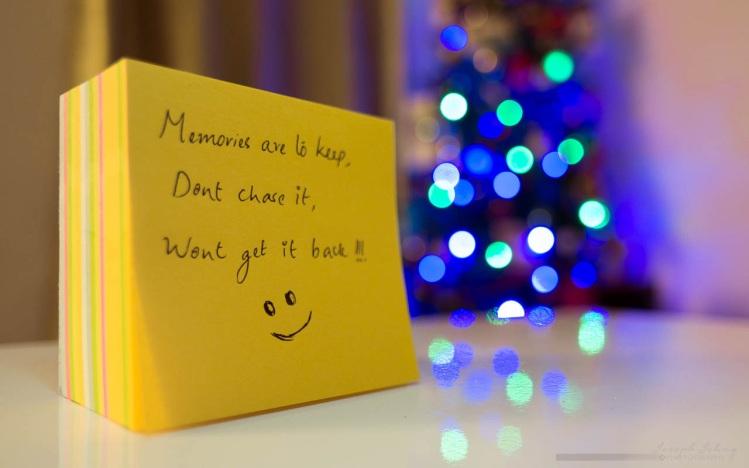 Memories are to keep,
Dont chase it,
Wont get it back !!!